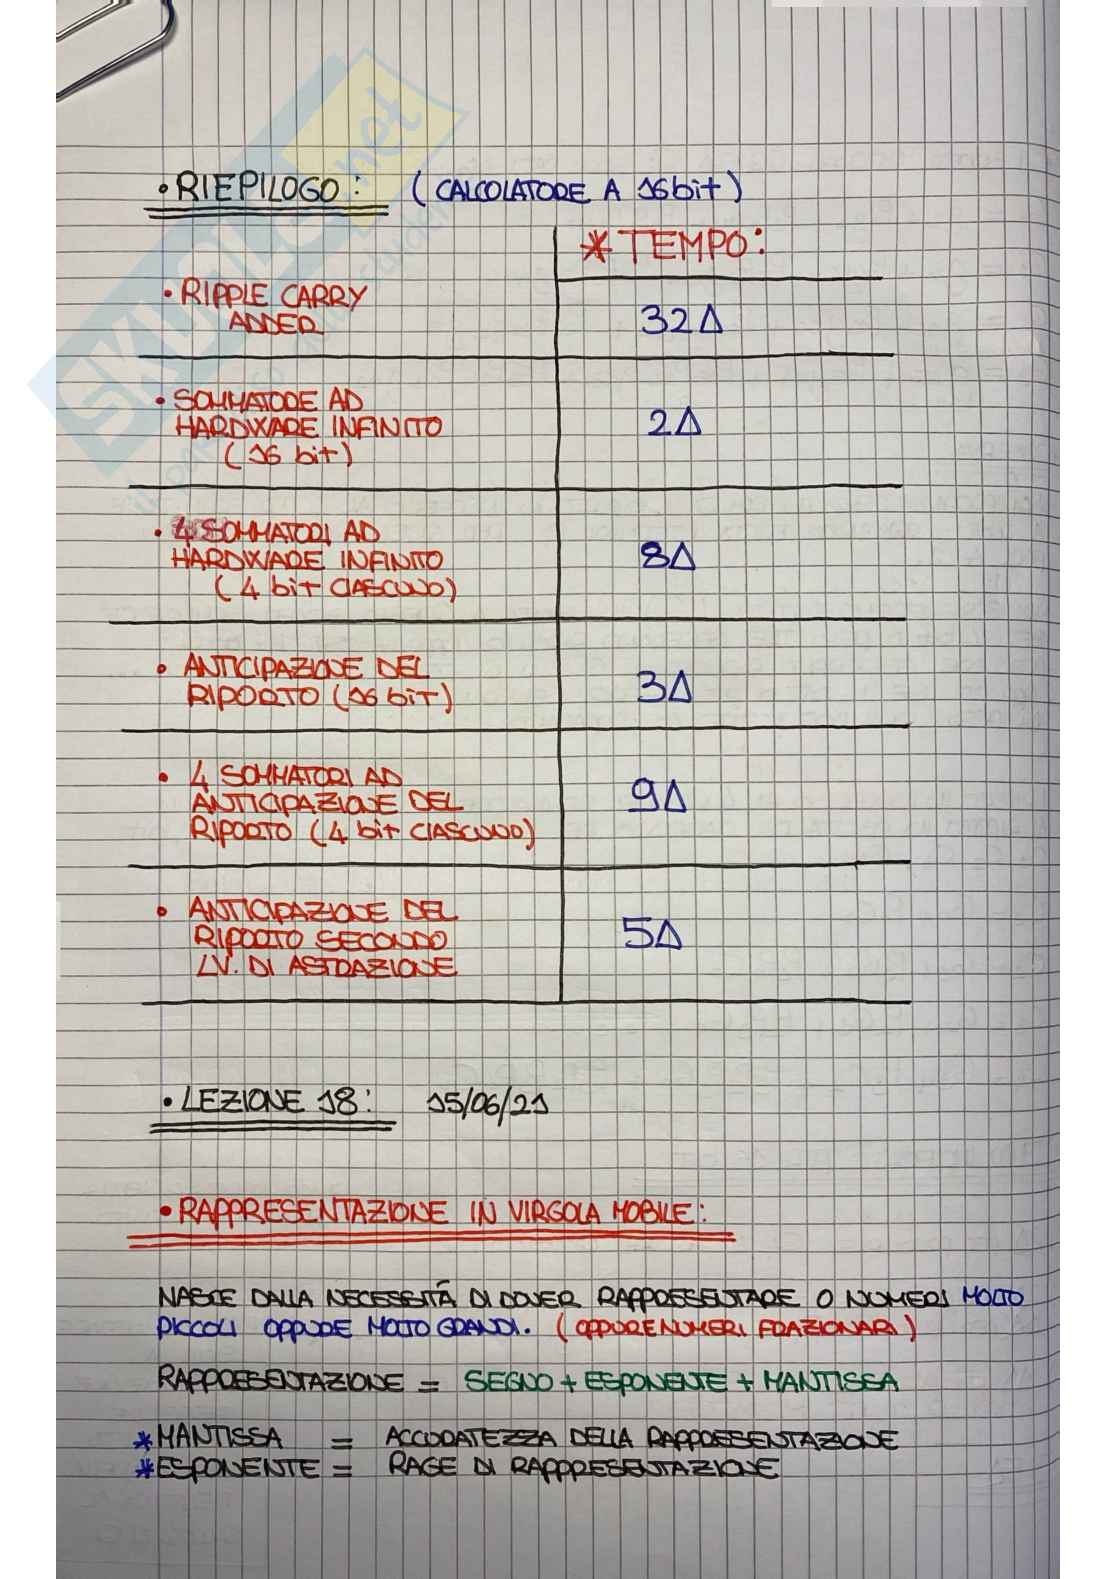 • RIEPILOGO: (CALCOLATORE A 16 bit)
* TEMPO:
• RIPPLE CARRY
ADDER
32Δ
• SOMMATORE AD
HARDWARE INFINITO
(16 bit)
2Δ
• 4 SOMMATORI AD
HARDWARE INFINITO
(4 bit CIASCUNO)
8Δ
• ANTICIPAZIONE DEL
RIPORTO (16 bit)
3Δ
• 4 SOMMATORI AD
ANTICIPAZIONE DEL
RIPORTO (4 bit CIASCUNO)
9Δ
• ANTICIPAZIONE DEL
RIPORTO SECONDO
LV. DI ASTRAZIONE
5Δ
• LEZIONE 18: 15/06/21
• RAPPRESENTAZIONE IN VIRGOLA MOBILE:
NASCE DALLA NECESSITÀ DI DOVER RAPPRESENTARE O NUMERI MOLTO
PICCOLI OPPURE MOLTO GRANDI. (OPPURE NUMERI FRAZIONARI)
RAPPRESENTAZIONE = SEGNO + ESPONENTE + MANTISSA
* MANTISSA = ACCURATEZZA DELLA RAPPRESENTAZIONE
* ESPONENTE = RAGE DI RAPPRESENTAZIONE